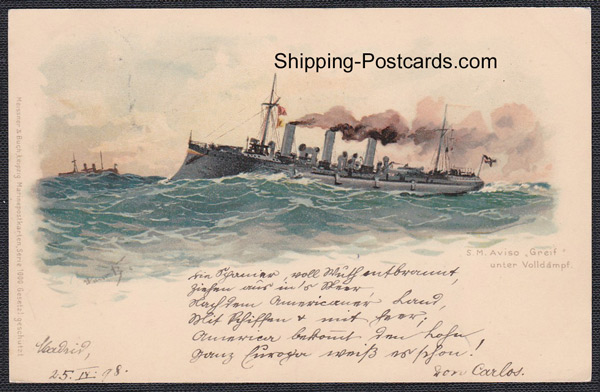 Shipping-Postcards.com
Meissner & Buch, Leipzig, Marinepostkarten, Serie 1000 Gesetzl. geschützt.
S.M. Aviso „Greif“
unter Volldampf.
Die Spanier, voll Wuth entbrannt,
Ziehen aus in's Meer,
Nach dem Americaner Land,
Mit Schiffen & mit Heer,
America bekommt den Lohn,
Ganz Europa weiß es schon!
Don Carlos.
Madrid,
25. IV. 98.